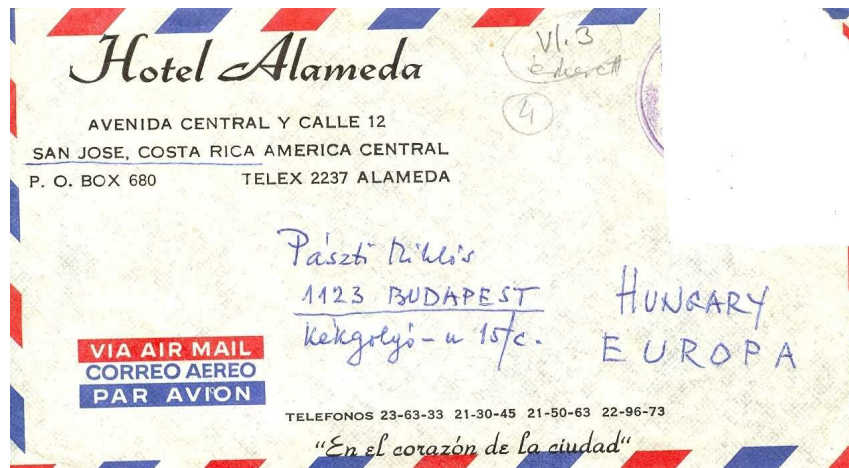 Hotel Alameda
AVENIDA CENTRAL Y CALLE 12
SAN JOSE, COSTA RICA AMERICA CENTRAL
P. O. BOX 680 TELEX 2237 ALAMEDA
VI.3
4
Pászti Miklós
1123 BUDAPEST
Kékgolyó-u 15/c.
HUNGARY
EUROPA
VIA AIR MAIL
CORREO AEREO
PAR AVION
TELEFONOS 23-63-33 21-30-45 21-50-63 22-96-73
"En el corazón de la ciudad"